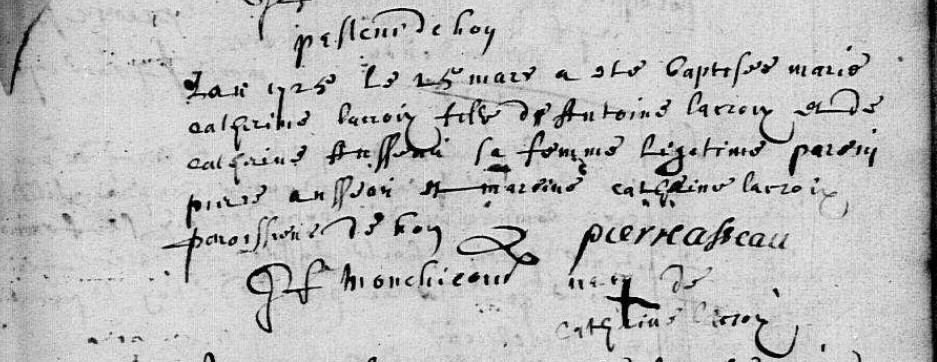 pasteur de hoy
Lan 1725 le 25 mars a ete baptisee marie
catherine lacroix fille de Antoine lacroix et de
catherine Ansseau sa femme legitime parein
piere ansseau et mareine catherine lacroix
paroissiens de hoy pierre asseau
Jf monchicour marq de
catherine lacroix